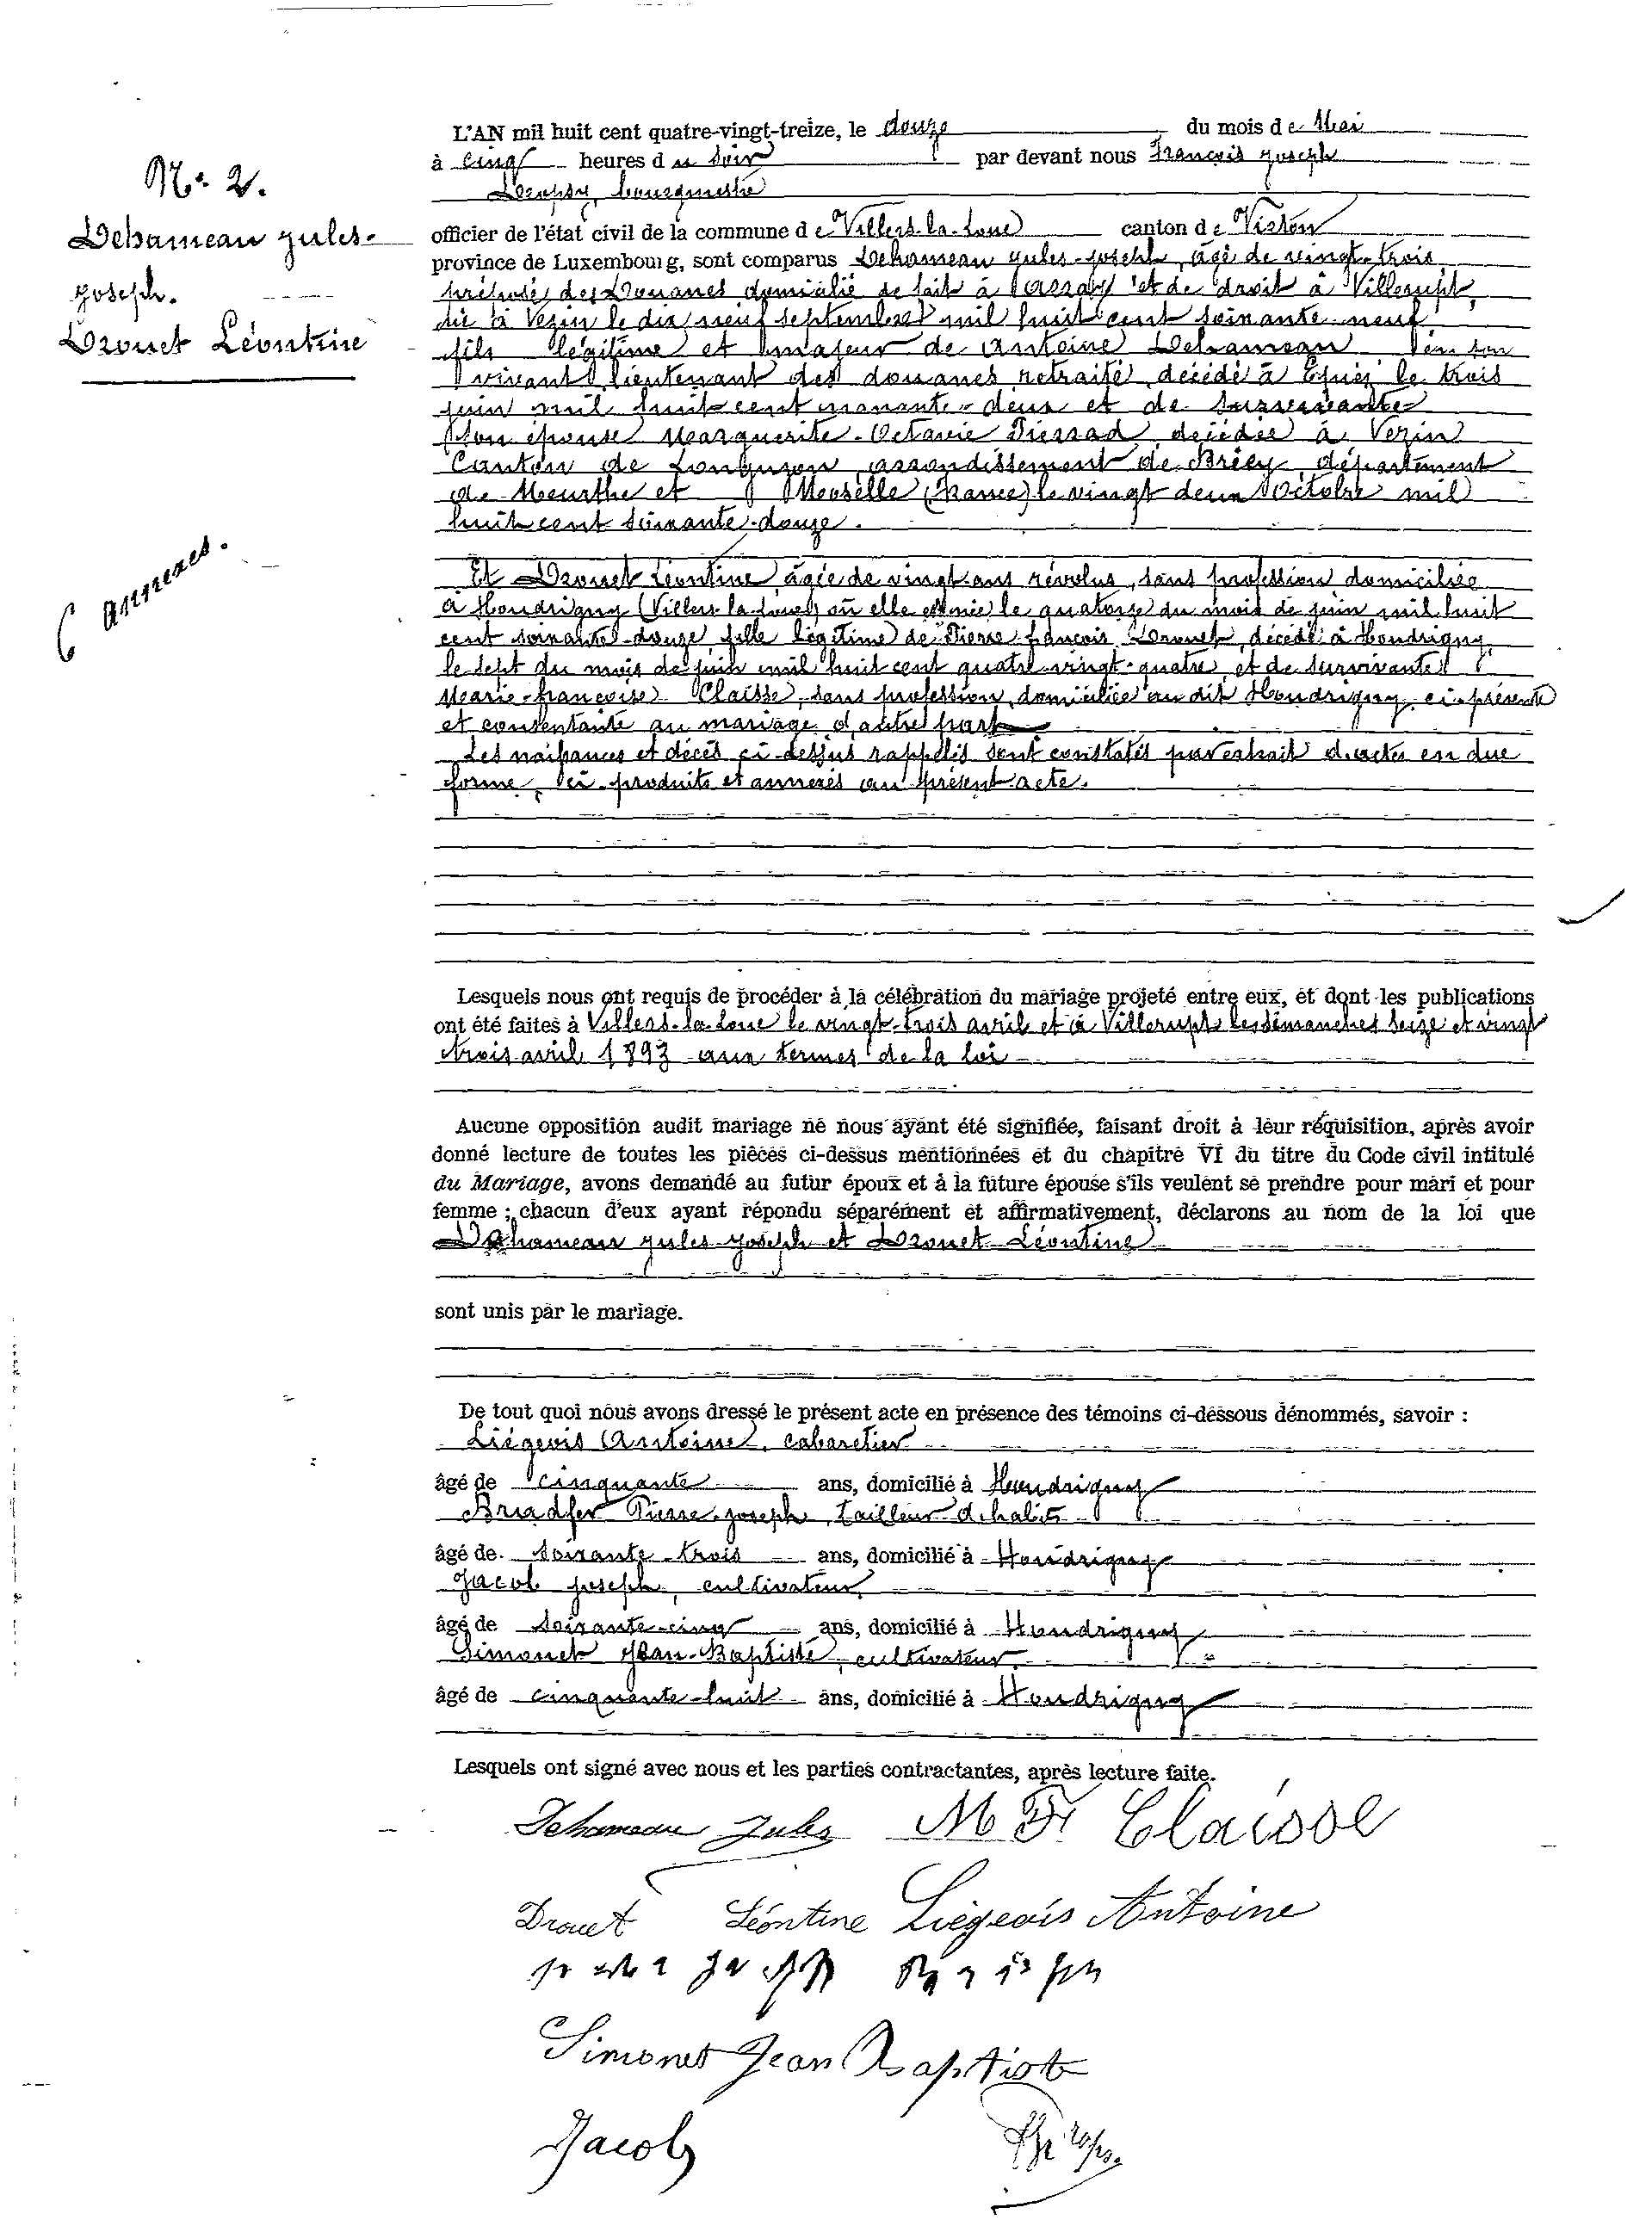 L'AN mil huit cent quatre-vingt-treize, le douze du mois de Mai
à cinq heures du soir par devant nous François Joseph
Dropsy, bourgmestre
N° 2.
Dehameau Jules-
Joseph.
Drouet Léontine
officier de l'état civil de la commune de Villers-la-Loue canton de Virton
province de Luxembourg, sont comparus Dehameau Jules-Joseph, âgé de vingt-trois
préposé des Douanes domicilié de fait à et de droit à Villerupt,
né à Vezin le dix neuf septembre mil huit cent soixante-neuf,
fils légitime et majeur de Antoine Dehameau en son
vivant lieutenant des douanes retraité, décédé à le trois
juin mil huit cent nonante-deux et de survivante
son épouse Marguerite-Octavie décédée à Vezin
Canton de Longuyon arrondissement de Briey département
de Meurthe et Moselle (France) le vingt deux Octobre mil
huit cent soixante-douze.
6 annexes.
Et Drouet Léontine âgée de vingt ans révolus, sans profession domiciliée
à Houdrigny (Villers-la-Loue) où elle est née le quatorze du mois de juin mil huit
cent soixante-douze, fille légitime de Pierre-françois Drouet, décédé à Houdrigny,
le sept du mois de juin mil huit cent quatre-vingt-quatre, et de survivante
Marie-françoise Claisse, sans profession, domiciliée au dit Houdrigny, ci-présente
et consentante au mariage d'autre part
Les naissances et décès ci-dessus rappelés sont constatés par extrait d'actes en due
forme, ici produits et annexés au présent acte.
Lesquels nous ont requis de procéder à la célébration du mariage projeté entre eux, et dont les publications
ont été faites à Villers-la-Loue le vingt-trois avril et à Villerupt les dimanches seize et vingt
trois avril 1893 aux termes de la loi
Aucune opposition audit mariage ne nous ayant été signifiée, faisant droit à leur réquisition, après avoir
donné lecture de toutes les pièces ci-dessus mentionnées et du chapitre VI du titre du Code civil intitulé
du Mariage, avons demandé au futur époux et à la future épouse s'ils veulent se prendre pour mari et pour
femme ; chacun d'eux ayant répondu séparément et affirmativement, déclarons au nom de la loi que
Dehameau Jules-Joseph et Drouet Léontine
sont unis par le mariage.
De tout quoi nous avons dressé le présent acte en présence des témoins ci-dessous dénommés, savoir :
Liégeois Antoine, cabaretier
âgé de cinquante ans, domicilié à Houdrigny
Pierre-Joseph, tailleur d'habits
âgé de soixante-trois ans, domicilié à Houdrigny
Jacob Joseph, cultivateur
âgé de soixante-cinq ans, domicilié à Houdrigny
Simonet Jean-Baptiste, cultivateur
âgé de cinquante-huit ans, domicilié à Houdrigny
Lesquels ont signé avec nous et les parties contractantes, après lecture faite.
Dehameau Jules M F Claisse
Drouet Léontine Liégeois Antoine
Simonet Jean Baptiste
Jacob